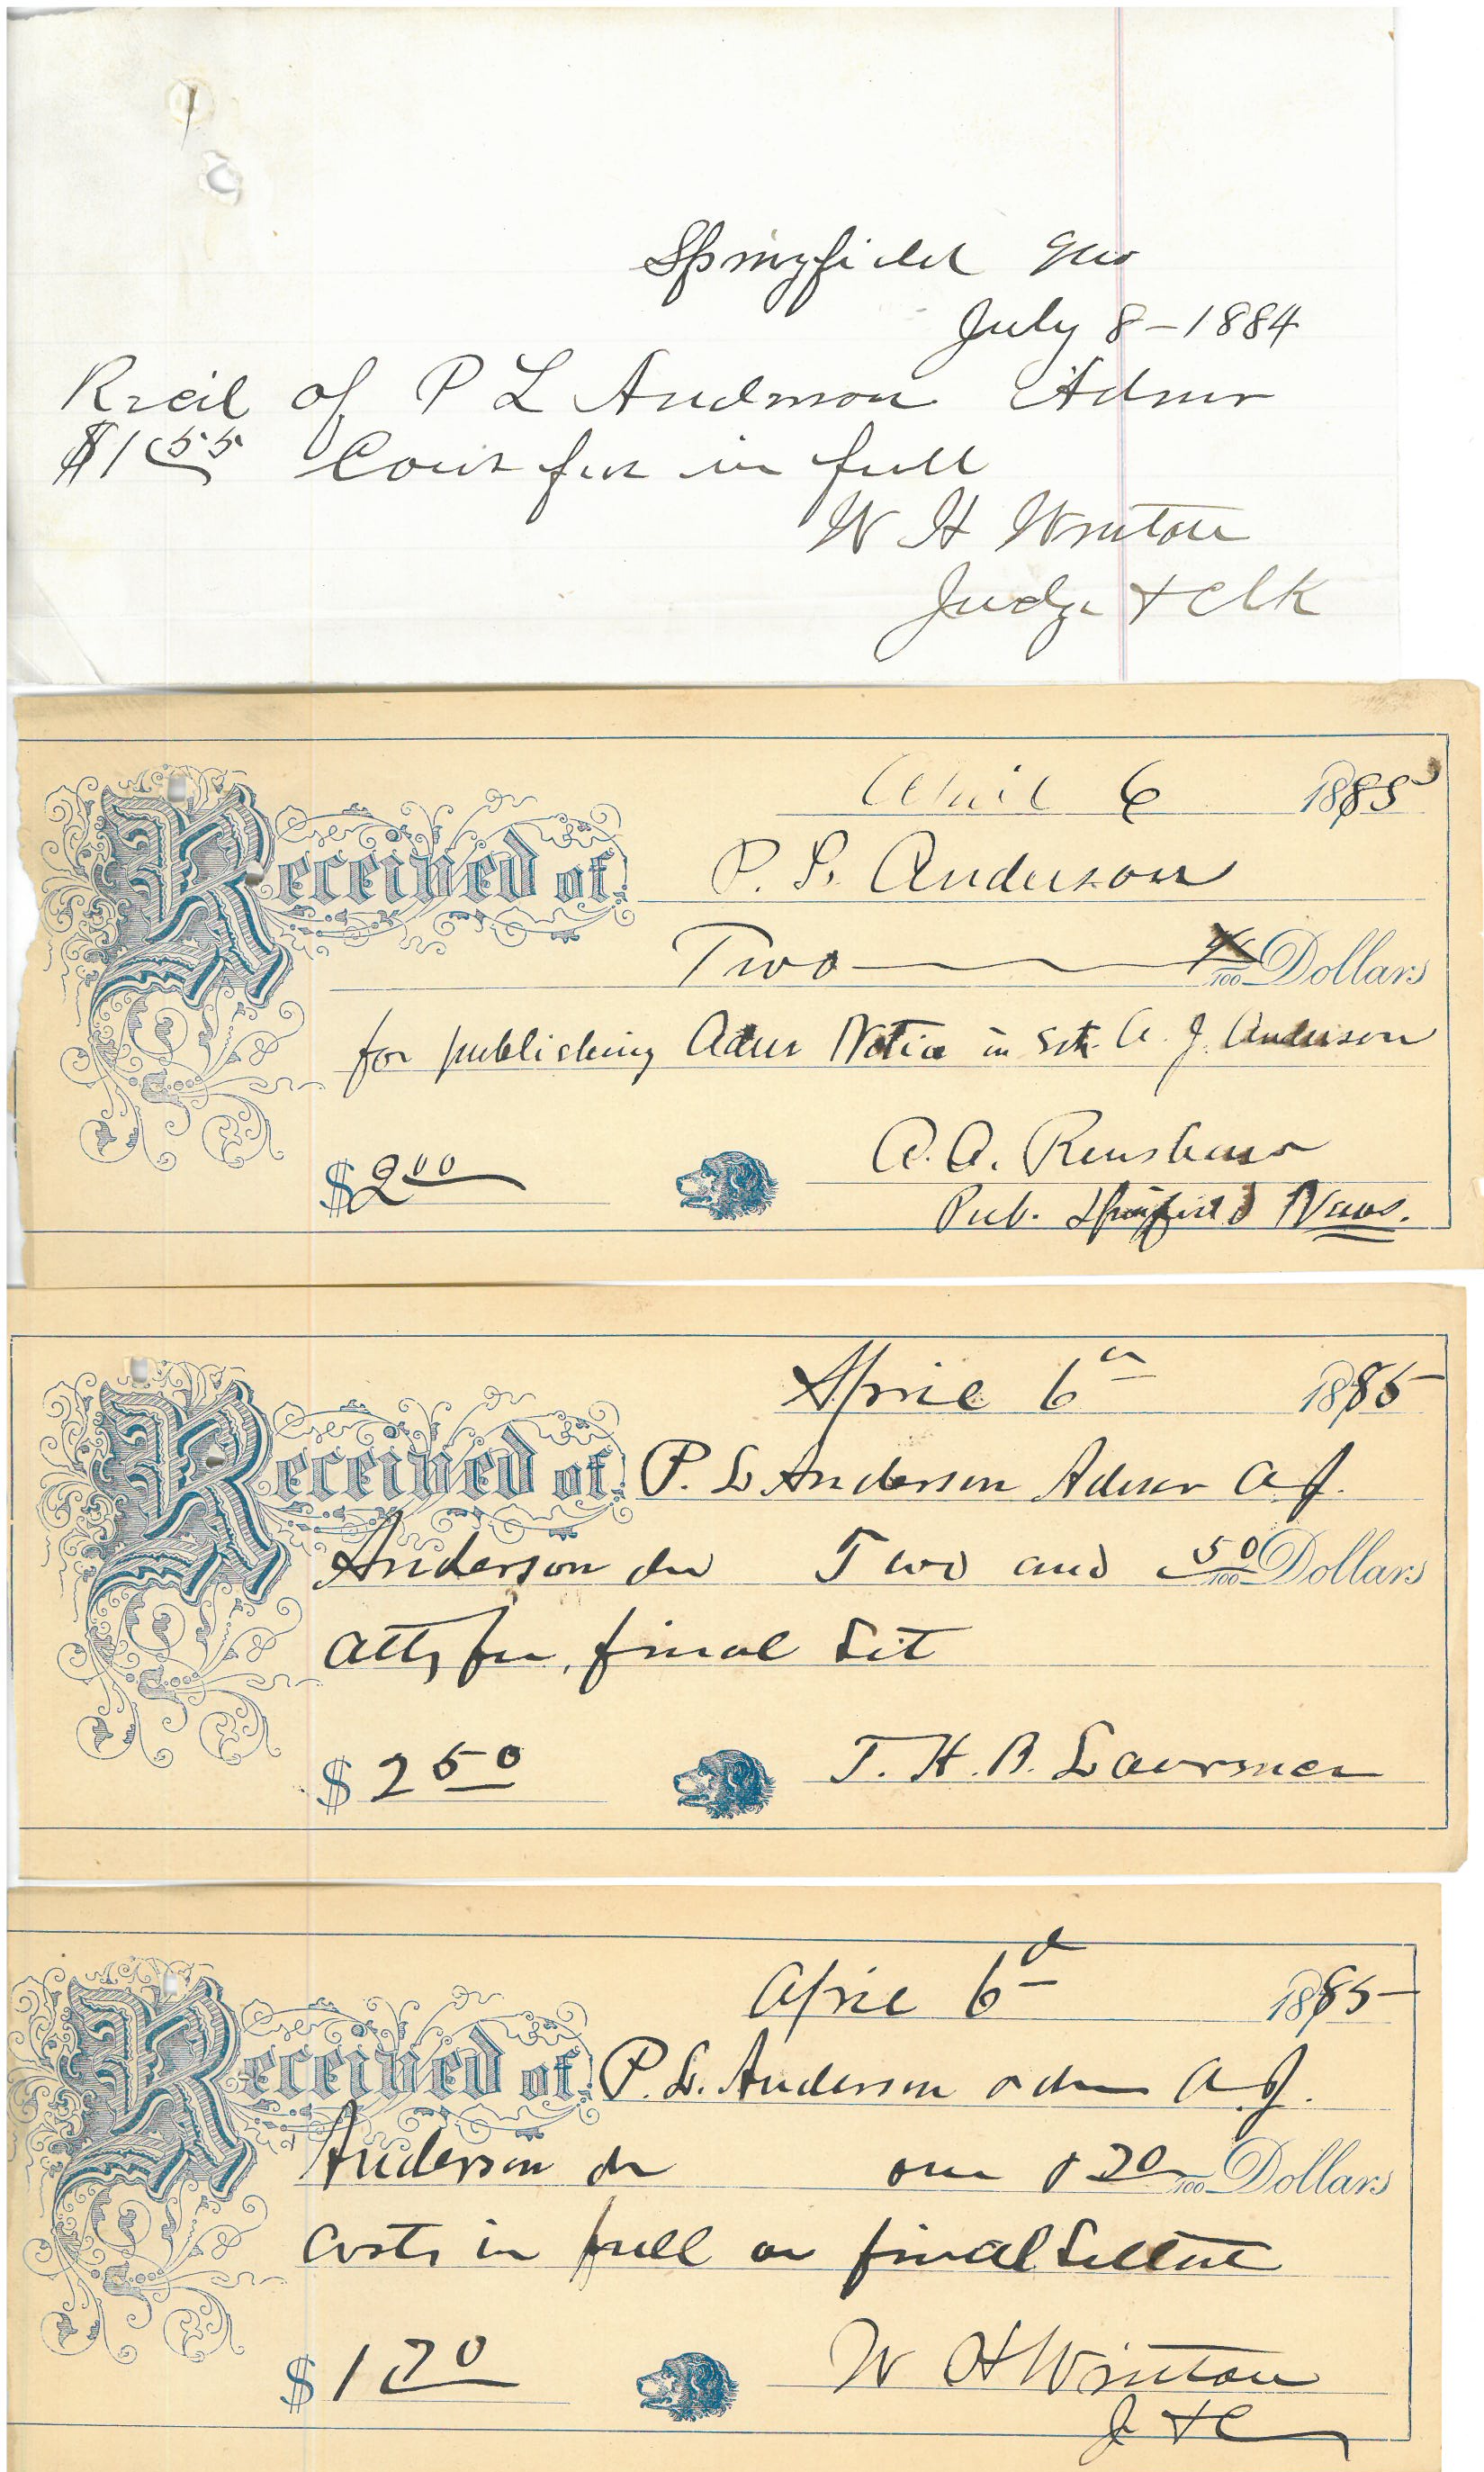 Springfield Mo
July 8-1884
Recd of P L Anderson Admr
$1 55 Court fees in full
W H Winton
Judge + Clk
April 6 1885
Received of P. L. Anderson
Two 100 Dollars
for publishing Admr Notice in Est. A. J. Anderson
$2 00 A. A. Renshaw
Pub. Springfield News.
April 6 1885
Received of P. L Anderson Admr A. J.
Anderson dec Two and 50/100 Dollars
Atty fee, final Set
$2 50 T. H. B. Lawrence
April 6 1885
Received of P. L. Anderson adm A. J.
Anderson dec one & 70/100 Dollars
Costs in full on final Settmt
$1 70 W H Winton
J + C